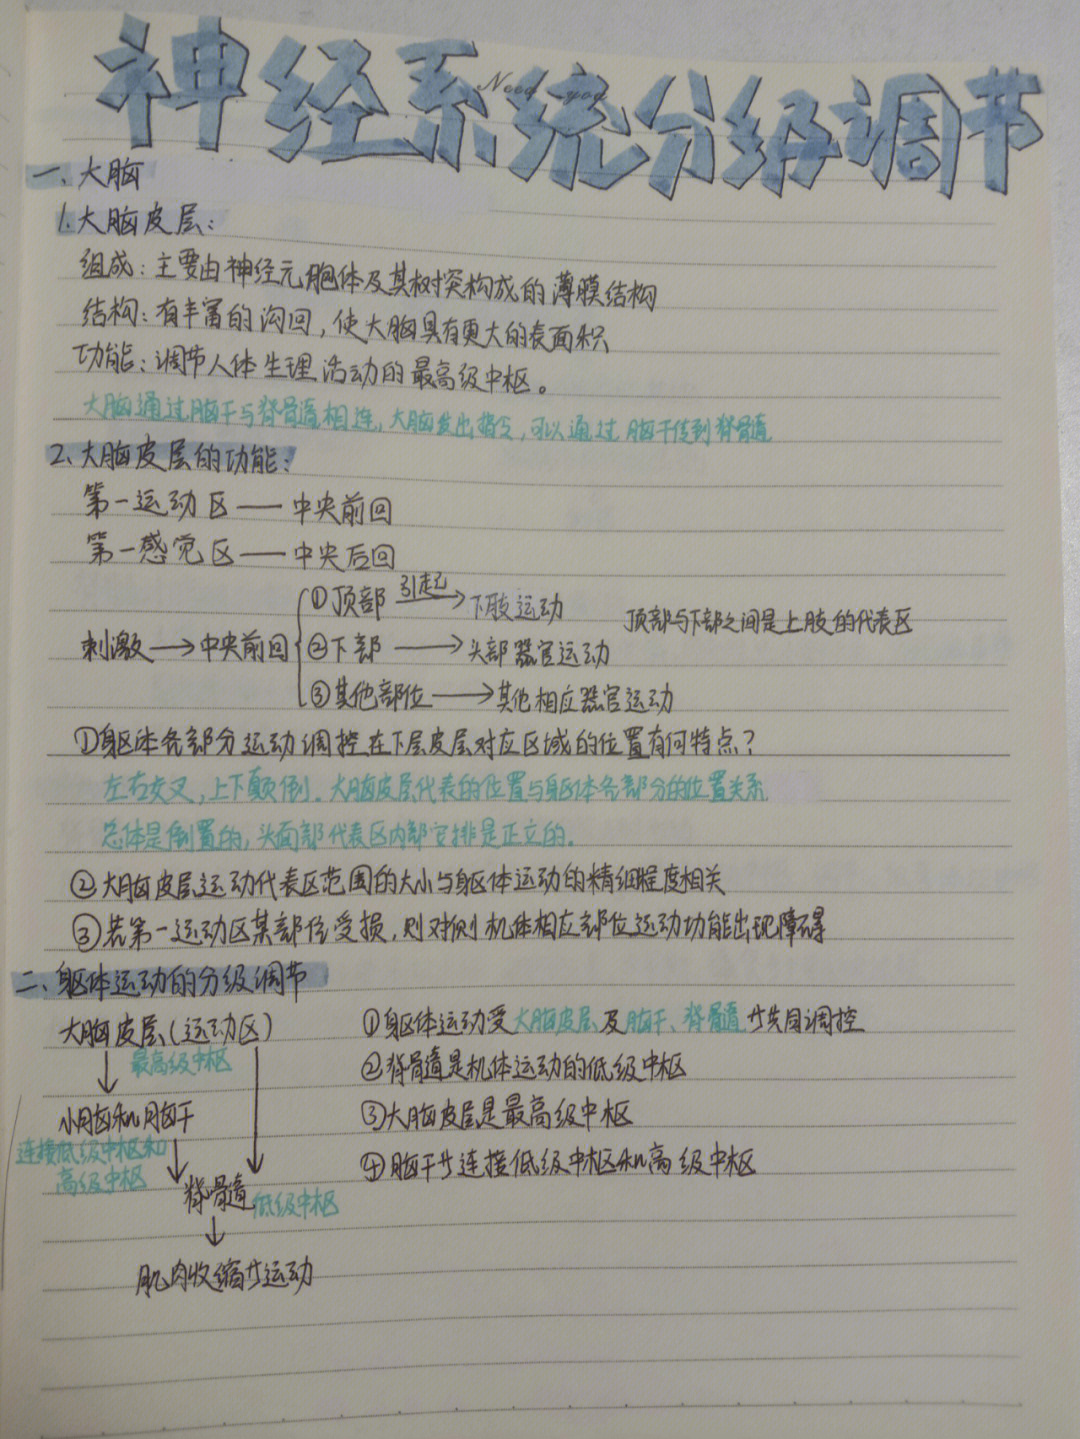 神经系统分级调节
Need you
一、大脑
1.大脑皮层:
组成:主要由神经元胞体及其树突构成的薄膜结构
结构:有丰富的沟回,使大脑具有更大的表面积
功能:调节人体生理活动的最高级中枢。
大脑通过脑干与脊髓相连,大脑发出指令,可以通过脑干传到脊髓
2、大脑皮层的功能:
第一运动区——中央前回
第一感觉区——中央后回
①顶部 引起→ 下肢运动
顶部与下部之间是上肢的代表区
刺激→中央前回 ②下部→头部器官运动
③其他部位→其他相应器官运动
①躯体各部分运动调控在下层皮层对应区域的位置有何特点?
左右交叉,上下颠倒.大脑皮层代表的位置与躯体各部分的位置关系
总体是倒置的,头面部代表区内部安排是正立的.
②大脑皮层运动代表区范围的大小与躯体运动的精细程度相关
③若第一运动区某部位受损,则对侧机体相应部位运动功能出现障碍
二、躯体运动的分级调节
大脑皮层(运动区)
最高级中枢
小脑和脑干
连接低级中枢和
高级中枢
脊髓 低级中枢
肌肉收缩→运动
①躯体运动受大脑皮层及脑干、脊髓→共同调控
②脊髓是机体运动的低级中枢
③大脑皮层是最高级中枢
④脑干→连接低级中枢和高级中枢